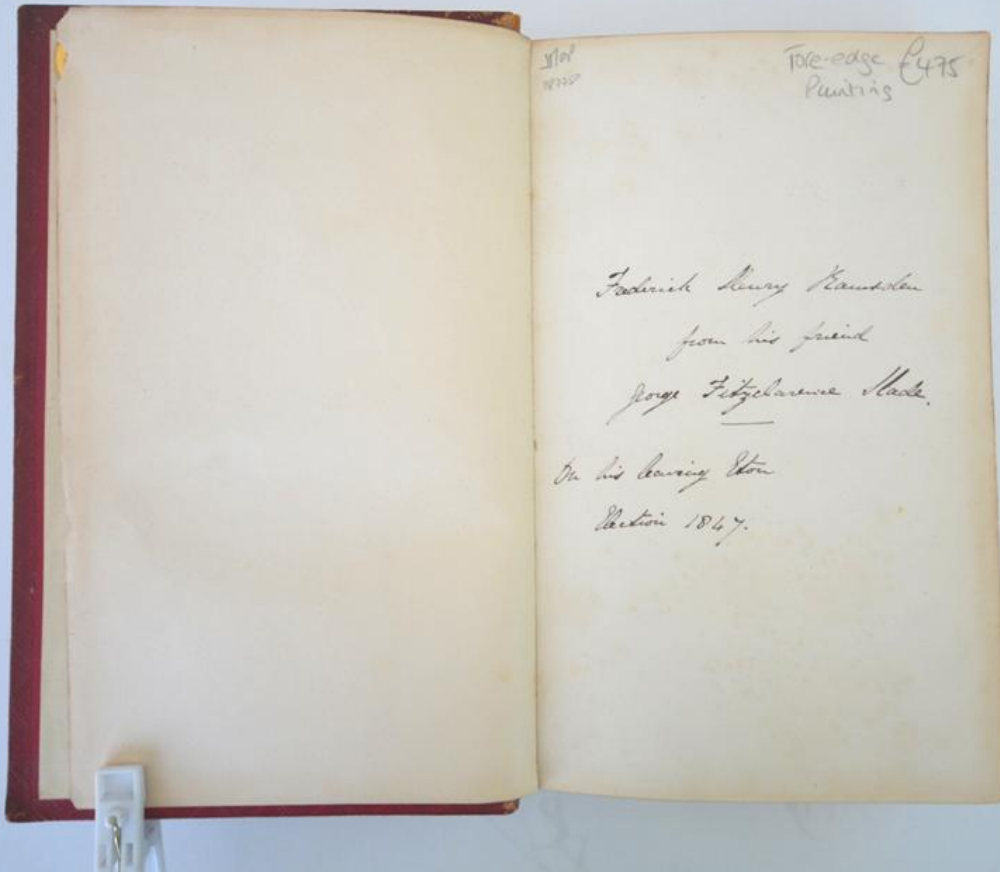 Fore-edge £475
Painting
Frederick Henry Ramsden
from his friend
George Fitzclarence Slade.
On his leaving Eton
Election 1847.